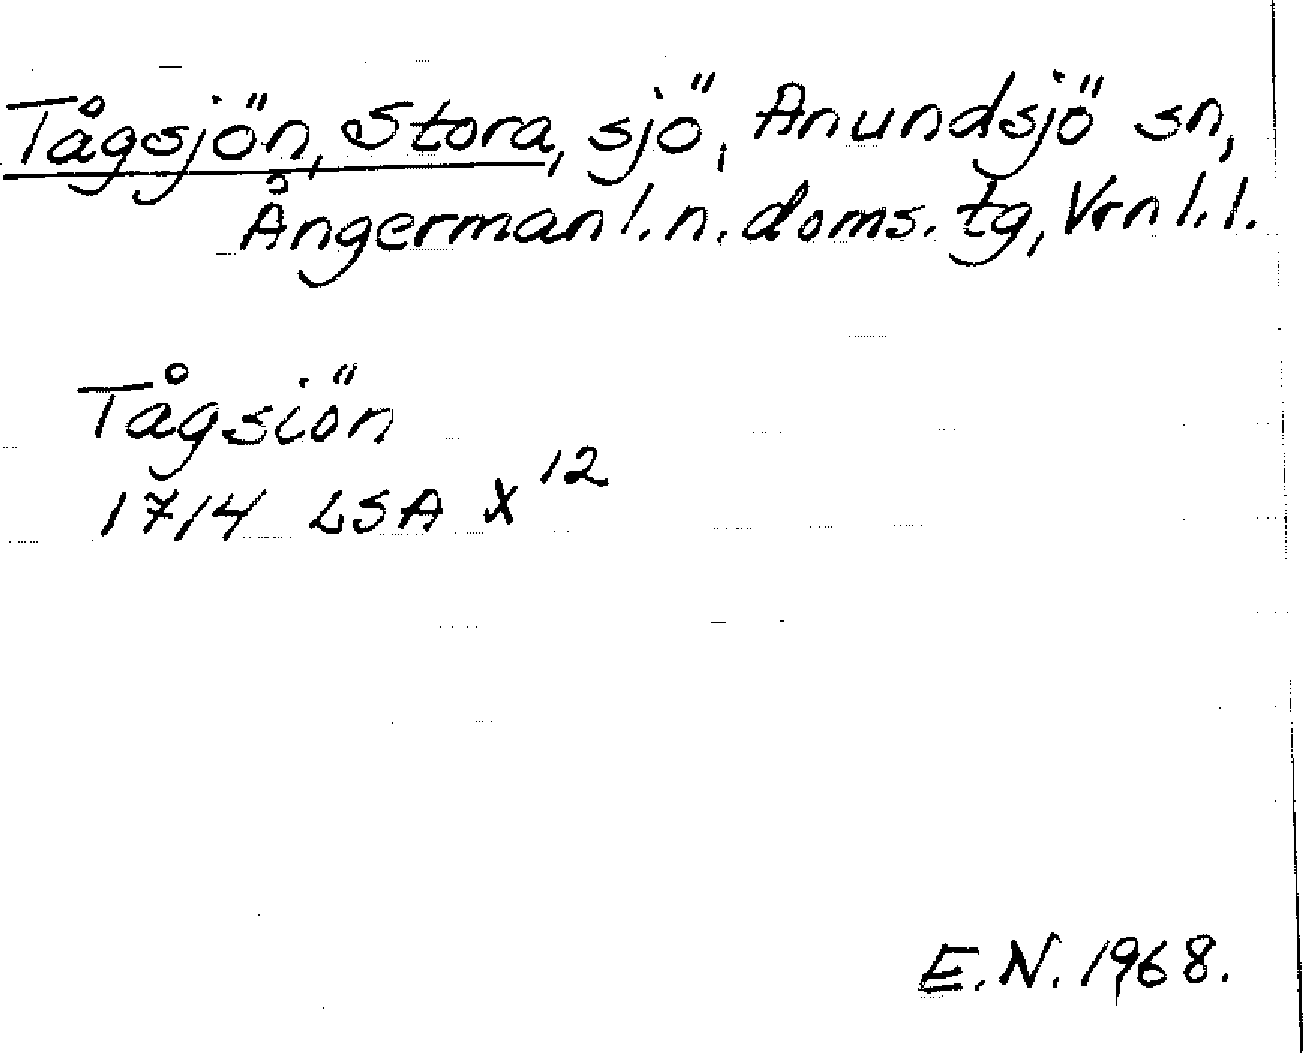 Tågsjön, Stora, sjö, Anundsjö sn,
Ångermanl. n. doms. tg, Vrnl. l.
Tågsiön
1714 LSA X 12
E.N. 1968.